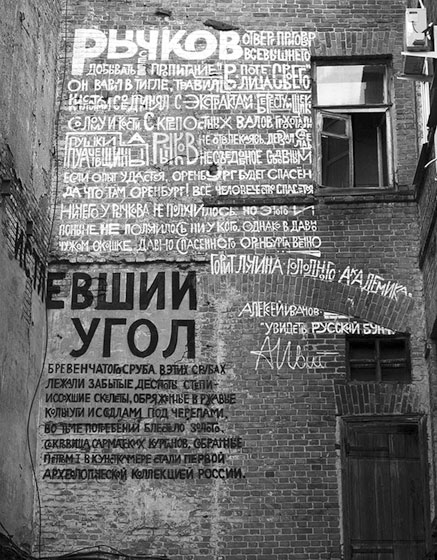 РЫЧКОВ ОТВЕРГ ПРИГОВОР
ВСЕВЫШНЕГО
ДОБЫВАТЬ ПРОПИТАНИЕ В ПОТЕ СВОЕГО
ОН ВАРИЛ В ТИГЛЕ, ТРАВИЛ ЛИЦА
КИСЛОТЫ СОЕДИНЯЛ С ЭКСТРАКТАМИ
СОЛОУ И КОСТИ С КРЕПОСТНЫХ ВАЛОВ ГРОХОТАЛИ
ПУШКИ
ПУГАЧЕВЩИНЫ А РЫЧКОВ НЕ ОТВЛЕКАЯСЬ
НЕСЪЕДОБНОЕ СЪЕДОБНЫМ
ЕСЛИ ОПЫТ УДАСТСЯ, ОРЕНБУРГ БУДЕТ СПАСЕН
ДА ЧТО ТАМ ОРЕНБУРГ! ВСЕ ЧЕЛОВЕЧЕСТВО СПАСЕТСЯ
НИЧЕГО У РЫЧКОВА НЕ ПОЛУЧИЛОСЬ. НО ЭТОГО И
ПОНЫНЕ НЕ ПОЛУЧИЛОСЬ НИ У КОГО. ОДНАКО В ДАВНО
ЧУЖОМ ОКОШКЕ ДАВНО СПАСЕННОГО ОРЕНБУРГА ВЕЧНО
ГОРИТ ЛУЧИНА ГОЛОДНОГО АКАДЕМИКА.
АЛЕКСЕЙ ИВАНОВ
"УВИДЕТЬ РУССКИЙ БУНТ"
ЕВШИЙ
УГОЛ
БРЕВЕНЧАТОГО СРУБА. В ЭТИХ СРУБАХ
ЛЕЖАЛИ ЗАБЫТЫЕ ДЕСЯТЬ СТЕПИ-
ИССОХШИЕ СКЕЛЕТЫ, ОБРЯЖЕННЫЕ В РЖАВЫЕ
КОЛЬЧУГИ И С СЕДЛАМИ ПОД ЧЕРЕПАМИ.
ВО ТЬМЕ ПОГРЕБЕНИЙ БЛЕДНЕЛО ЗОЛОТО.
СОКРОВИЩА САРМАТСКИХ КУРГАНОВ, СОБРАННЫЕ
ПЕТРОМ I В КУНСТКАМЕРЕ СТАЛИ ПЕРВОЙ
АРХЕОЛОГИЧЕСКОЙ КОЛЛЕКЦИЕЙ РОССИИ.